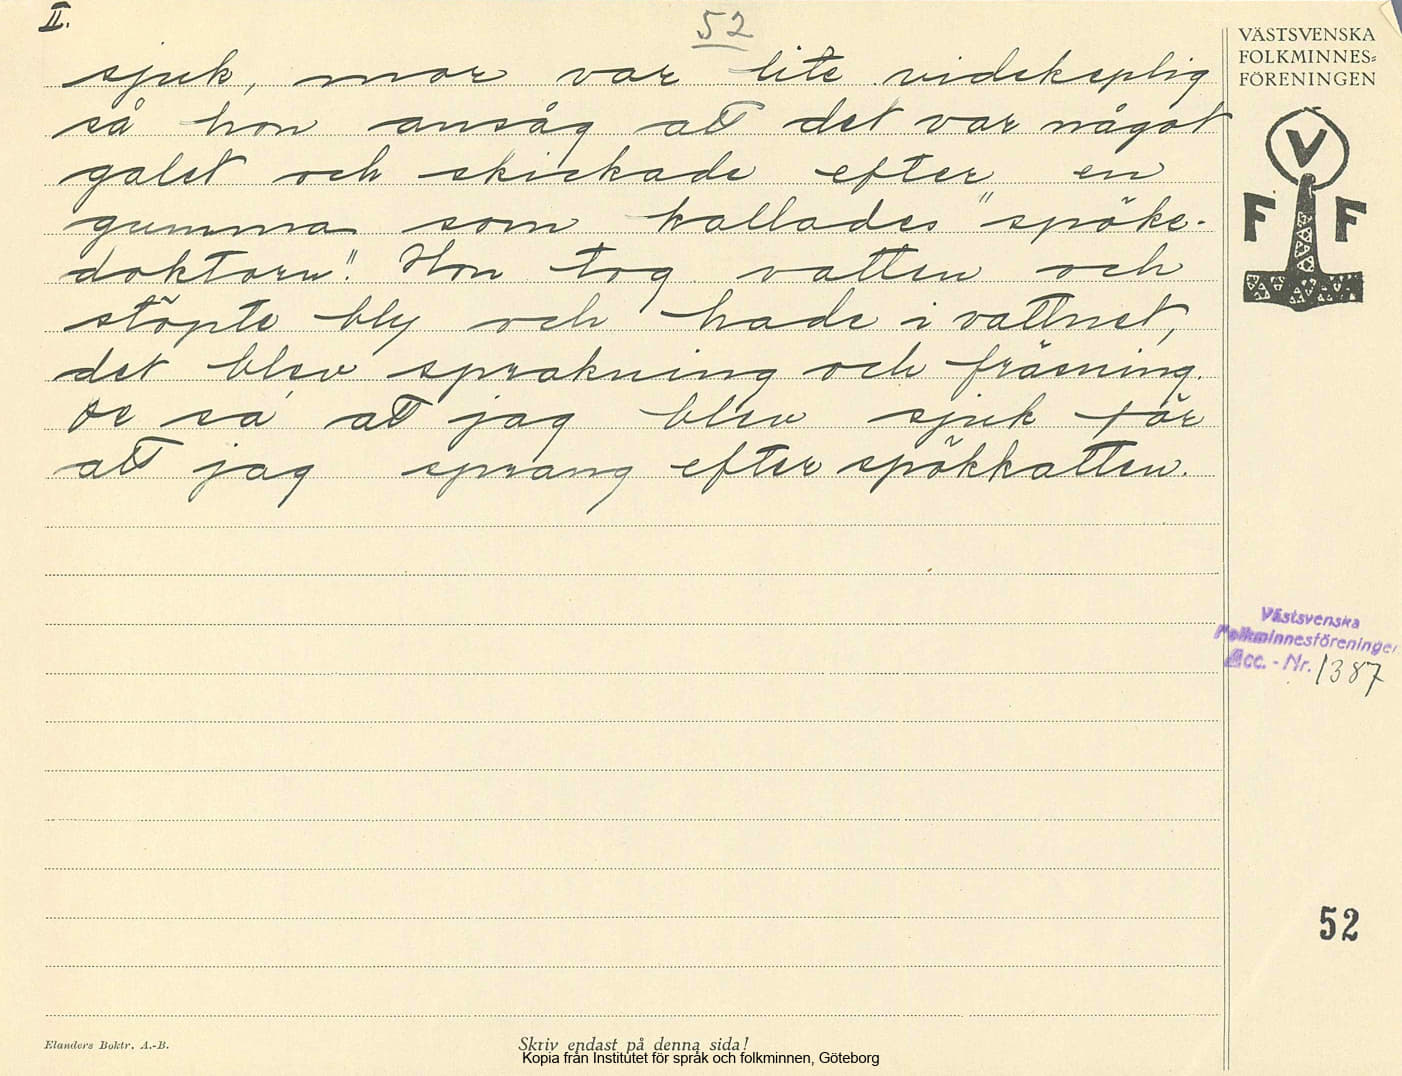 II.
52
sjuk, mor var lite vidskeplig
så hon ansåg att det var något
galet och skickade efter en
gumma som kallades "spöke-
doktorn". Hon tog vatten och
stöpte bly och hade i vattnet,
det blev sprakning och fräsning.
De sa att jag blev sjuk för
att jag sprang efter spökkatten.
VÄSTSVENSKA
FOLKMINNES=
FÖRENINGEN
V
F F
Västsvenska
Folkminnesföreningen
Acc. - Nr. 1387
52
Elanders Boktr. A.-B.
Skriv endast på denna sida!
Kopia från Institutet för språk och folkminnen, Göteborg